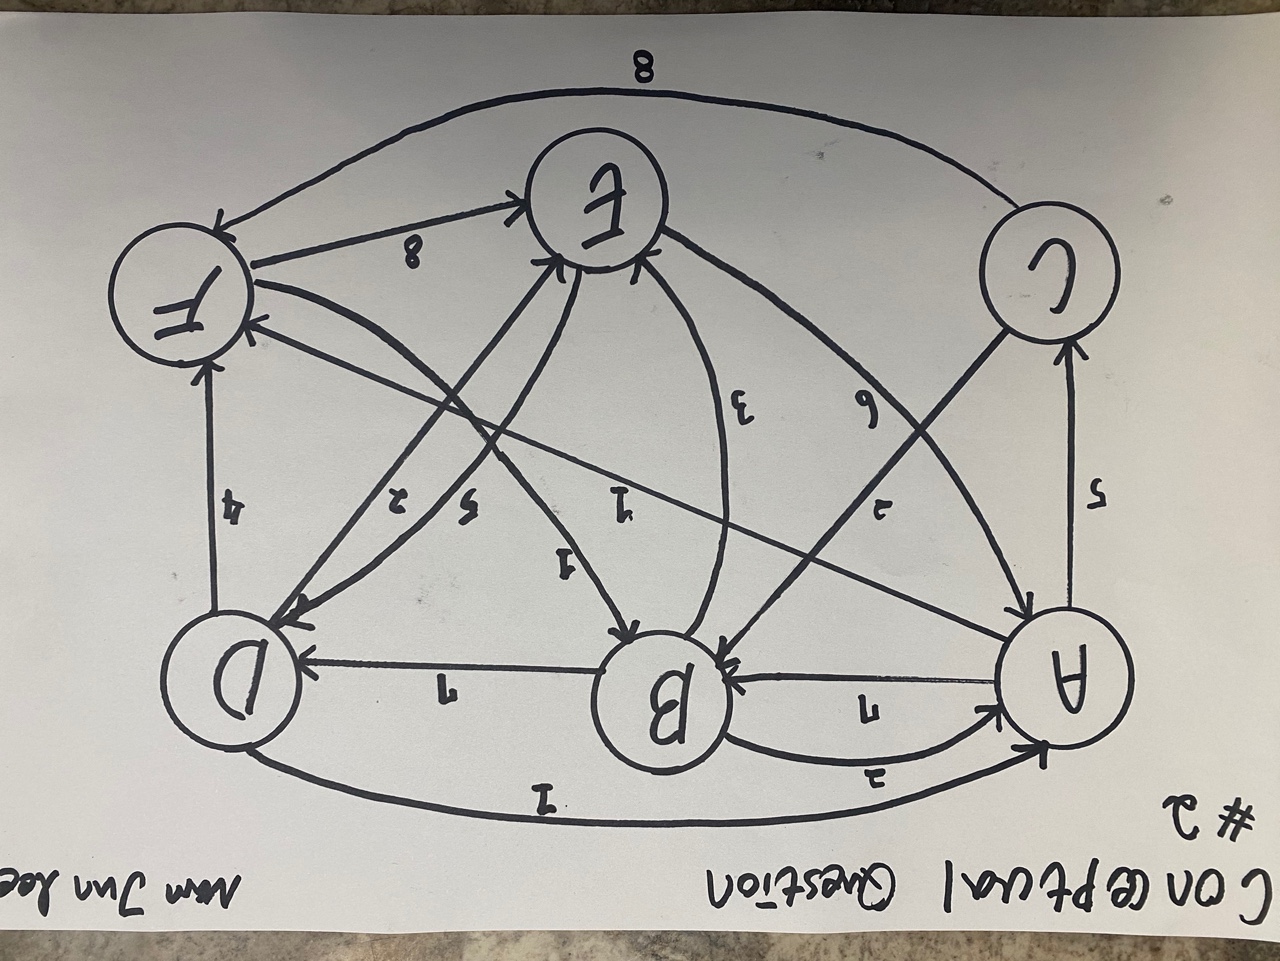 Conceptual Question
Nam Jun Lee
#2
1
2
7
A
B
7
D
1
5
2
1
5
2
4
6
3
C
F
E
8
8